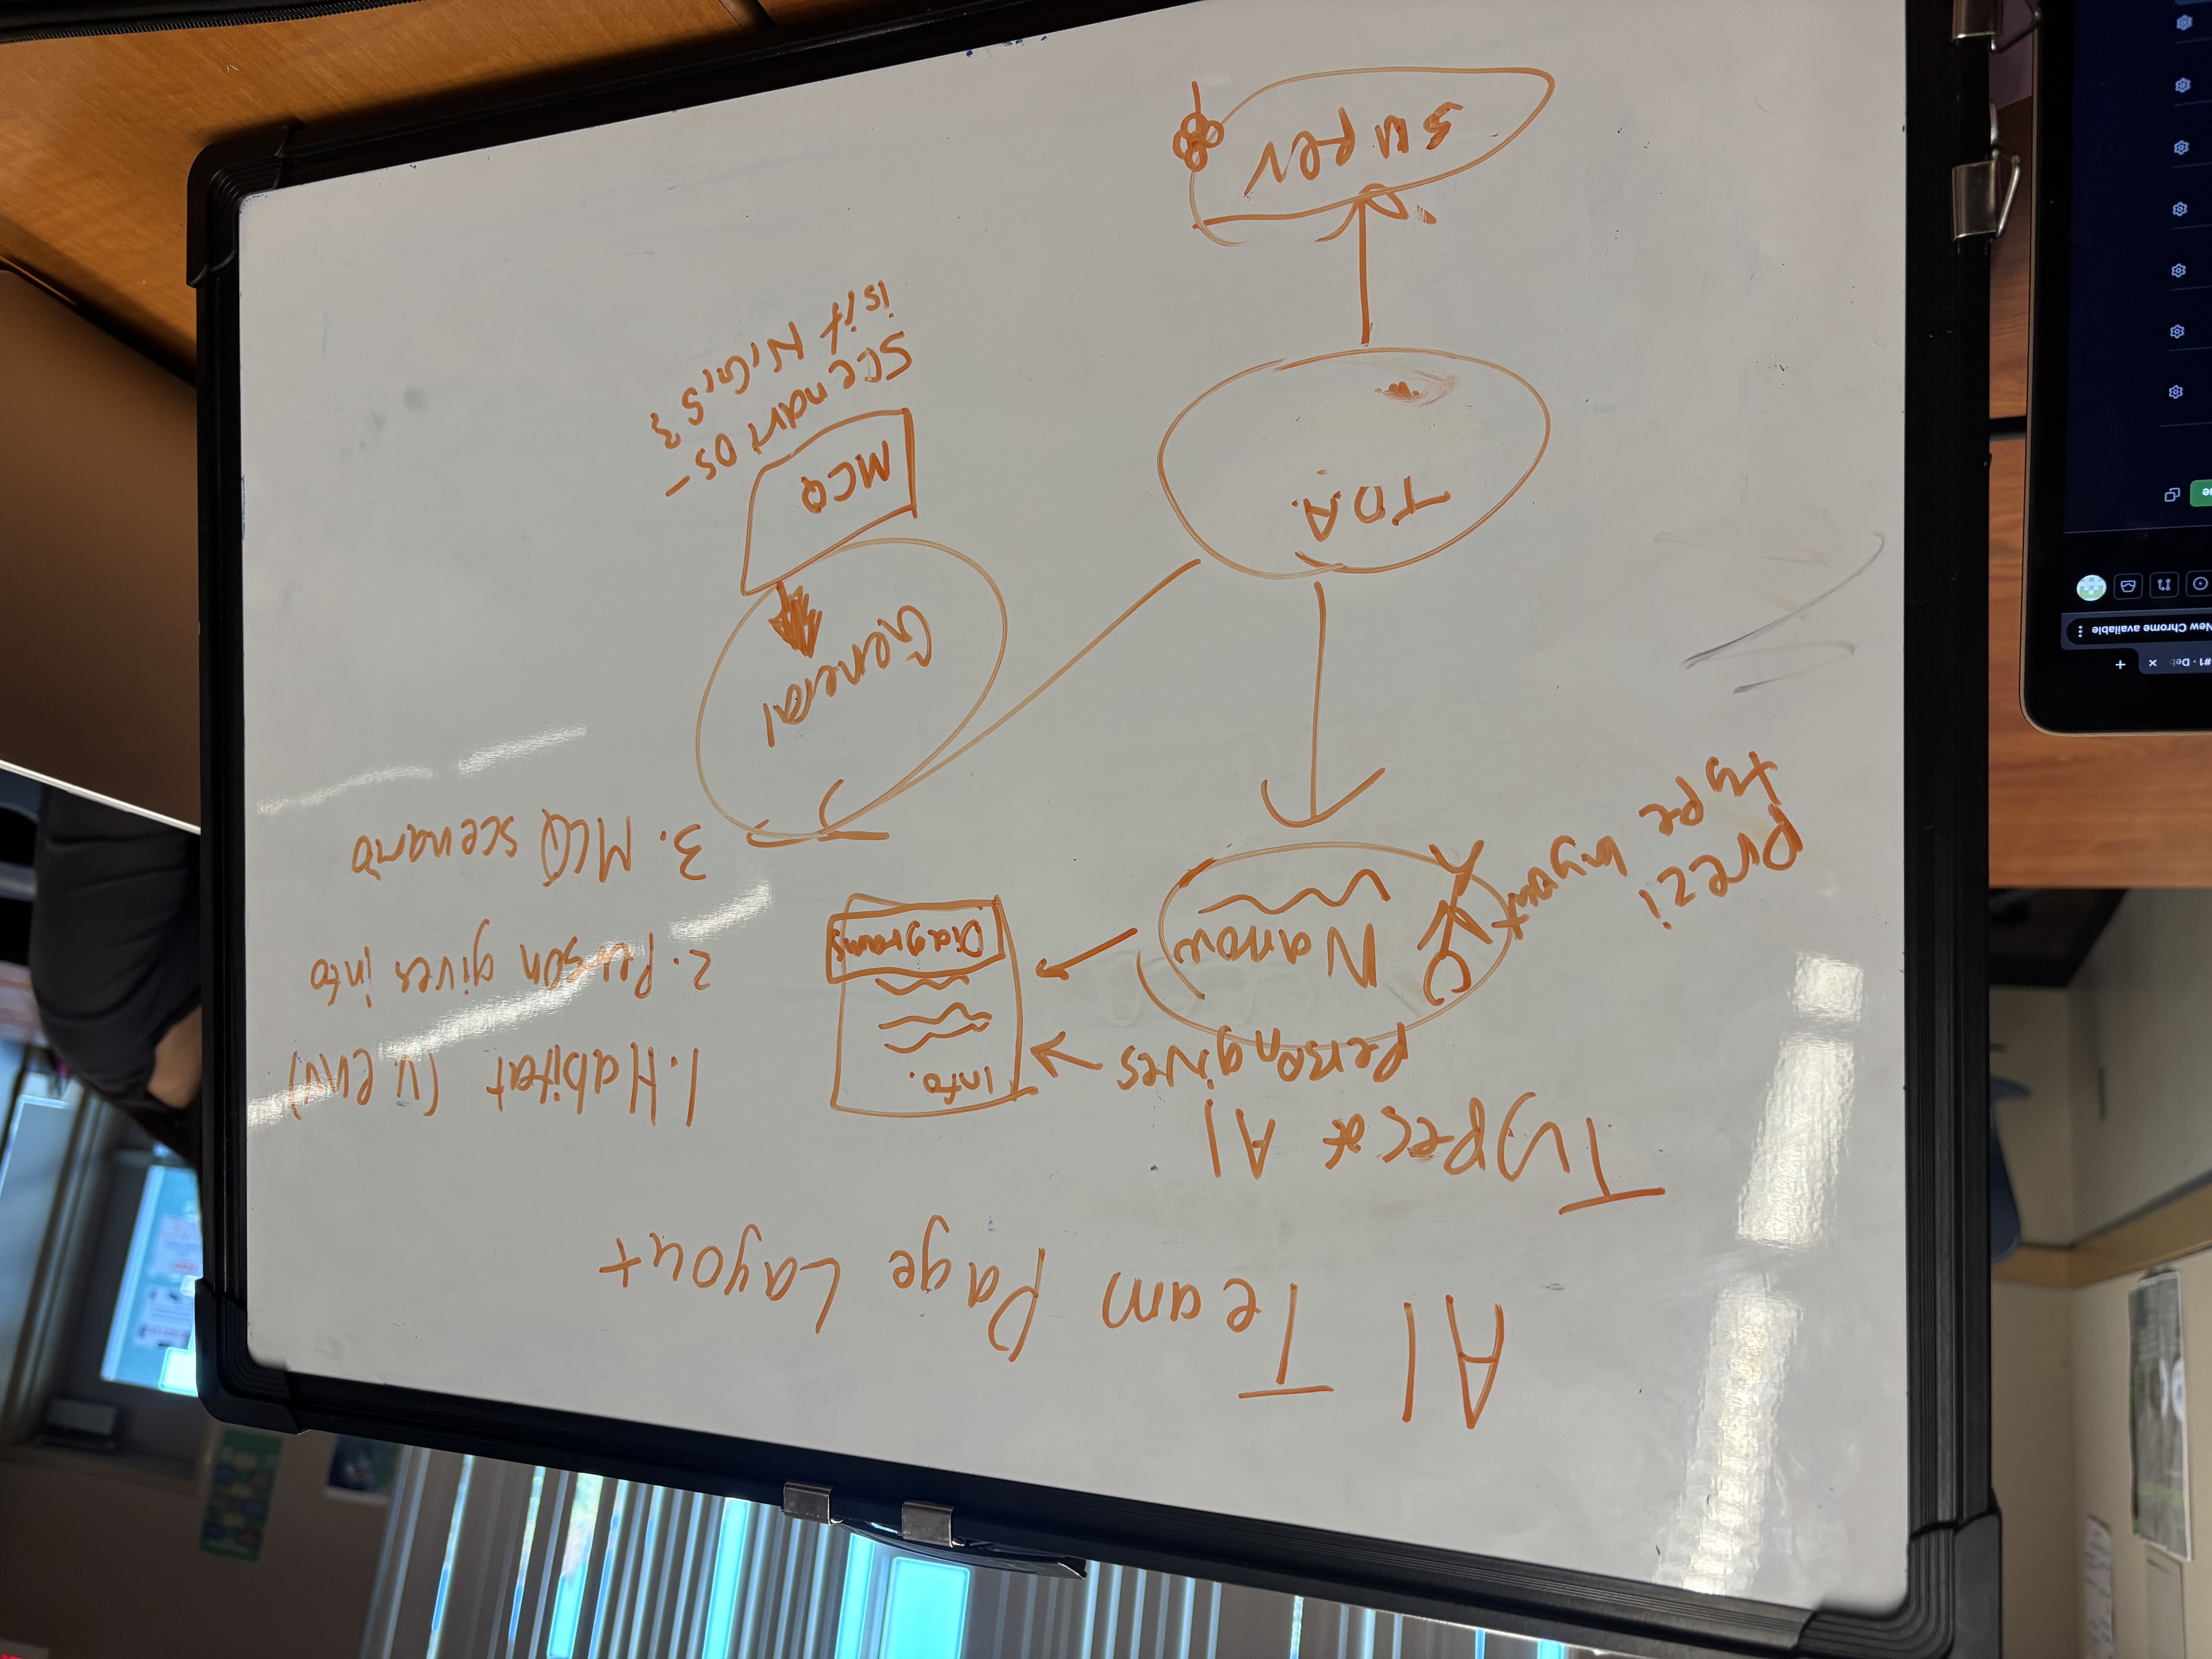 AI Team Page Layout
Types of AI
person gives
Info.
Diagrams
Narrow
prezi
type layout
1. Habitat (v. env)
2. Person gives info
3. MCQ scenario
General
MCQ
scenarios-
is it N, G, S?
T.O.A.
super
#1 - Deb
New Chrome available